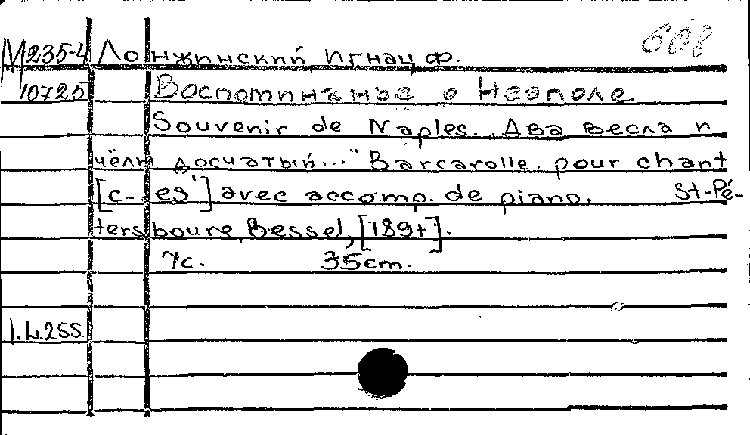 608
М235-4 Лонжинский Игнац Ф.
10725 Воспоминанье о Неаполе
Souvenir de Naples. „Два весла и
чёлн досчатый..." Barcarolle pour chant
[c-es'] avec accomp. de piano. St-Pé-
tersbourg, Bessel, [189+].
7c. 35cm.
1.4.255